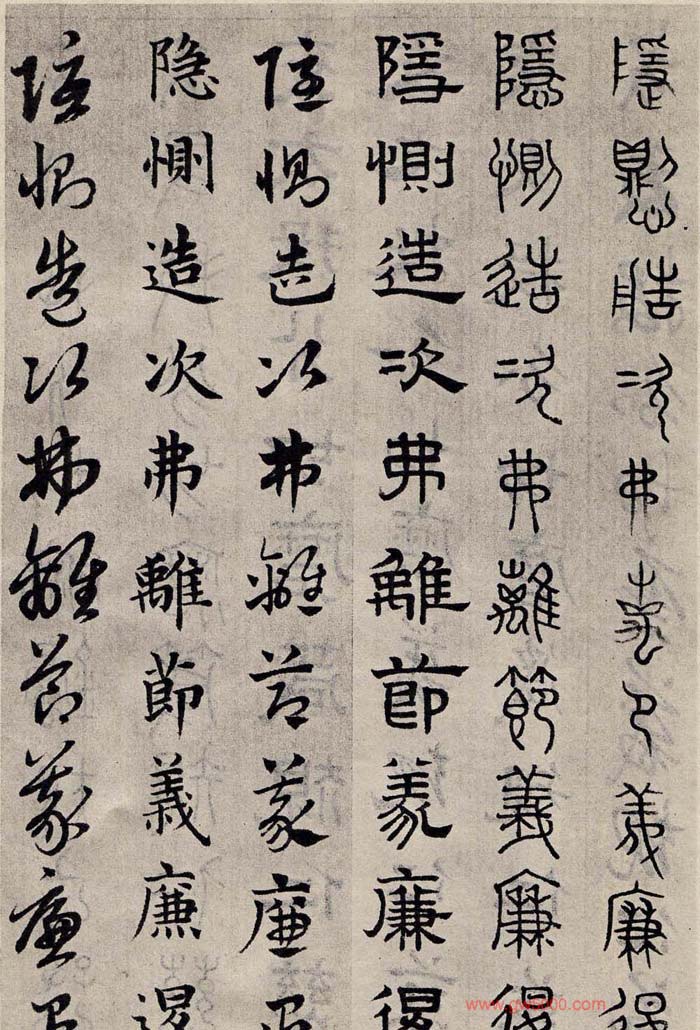 隱惻造次弗離節義廉
隱惻造次弗離節義廉
隱惻造次弗離節義廉
隱惻造次弗離節義廉
隱惻造次弗離節義廉
隱惻造次弗離節義廉